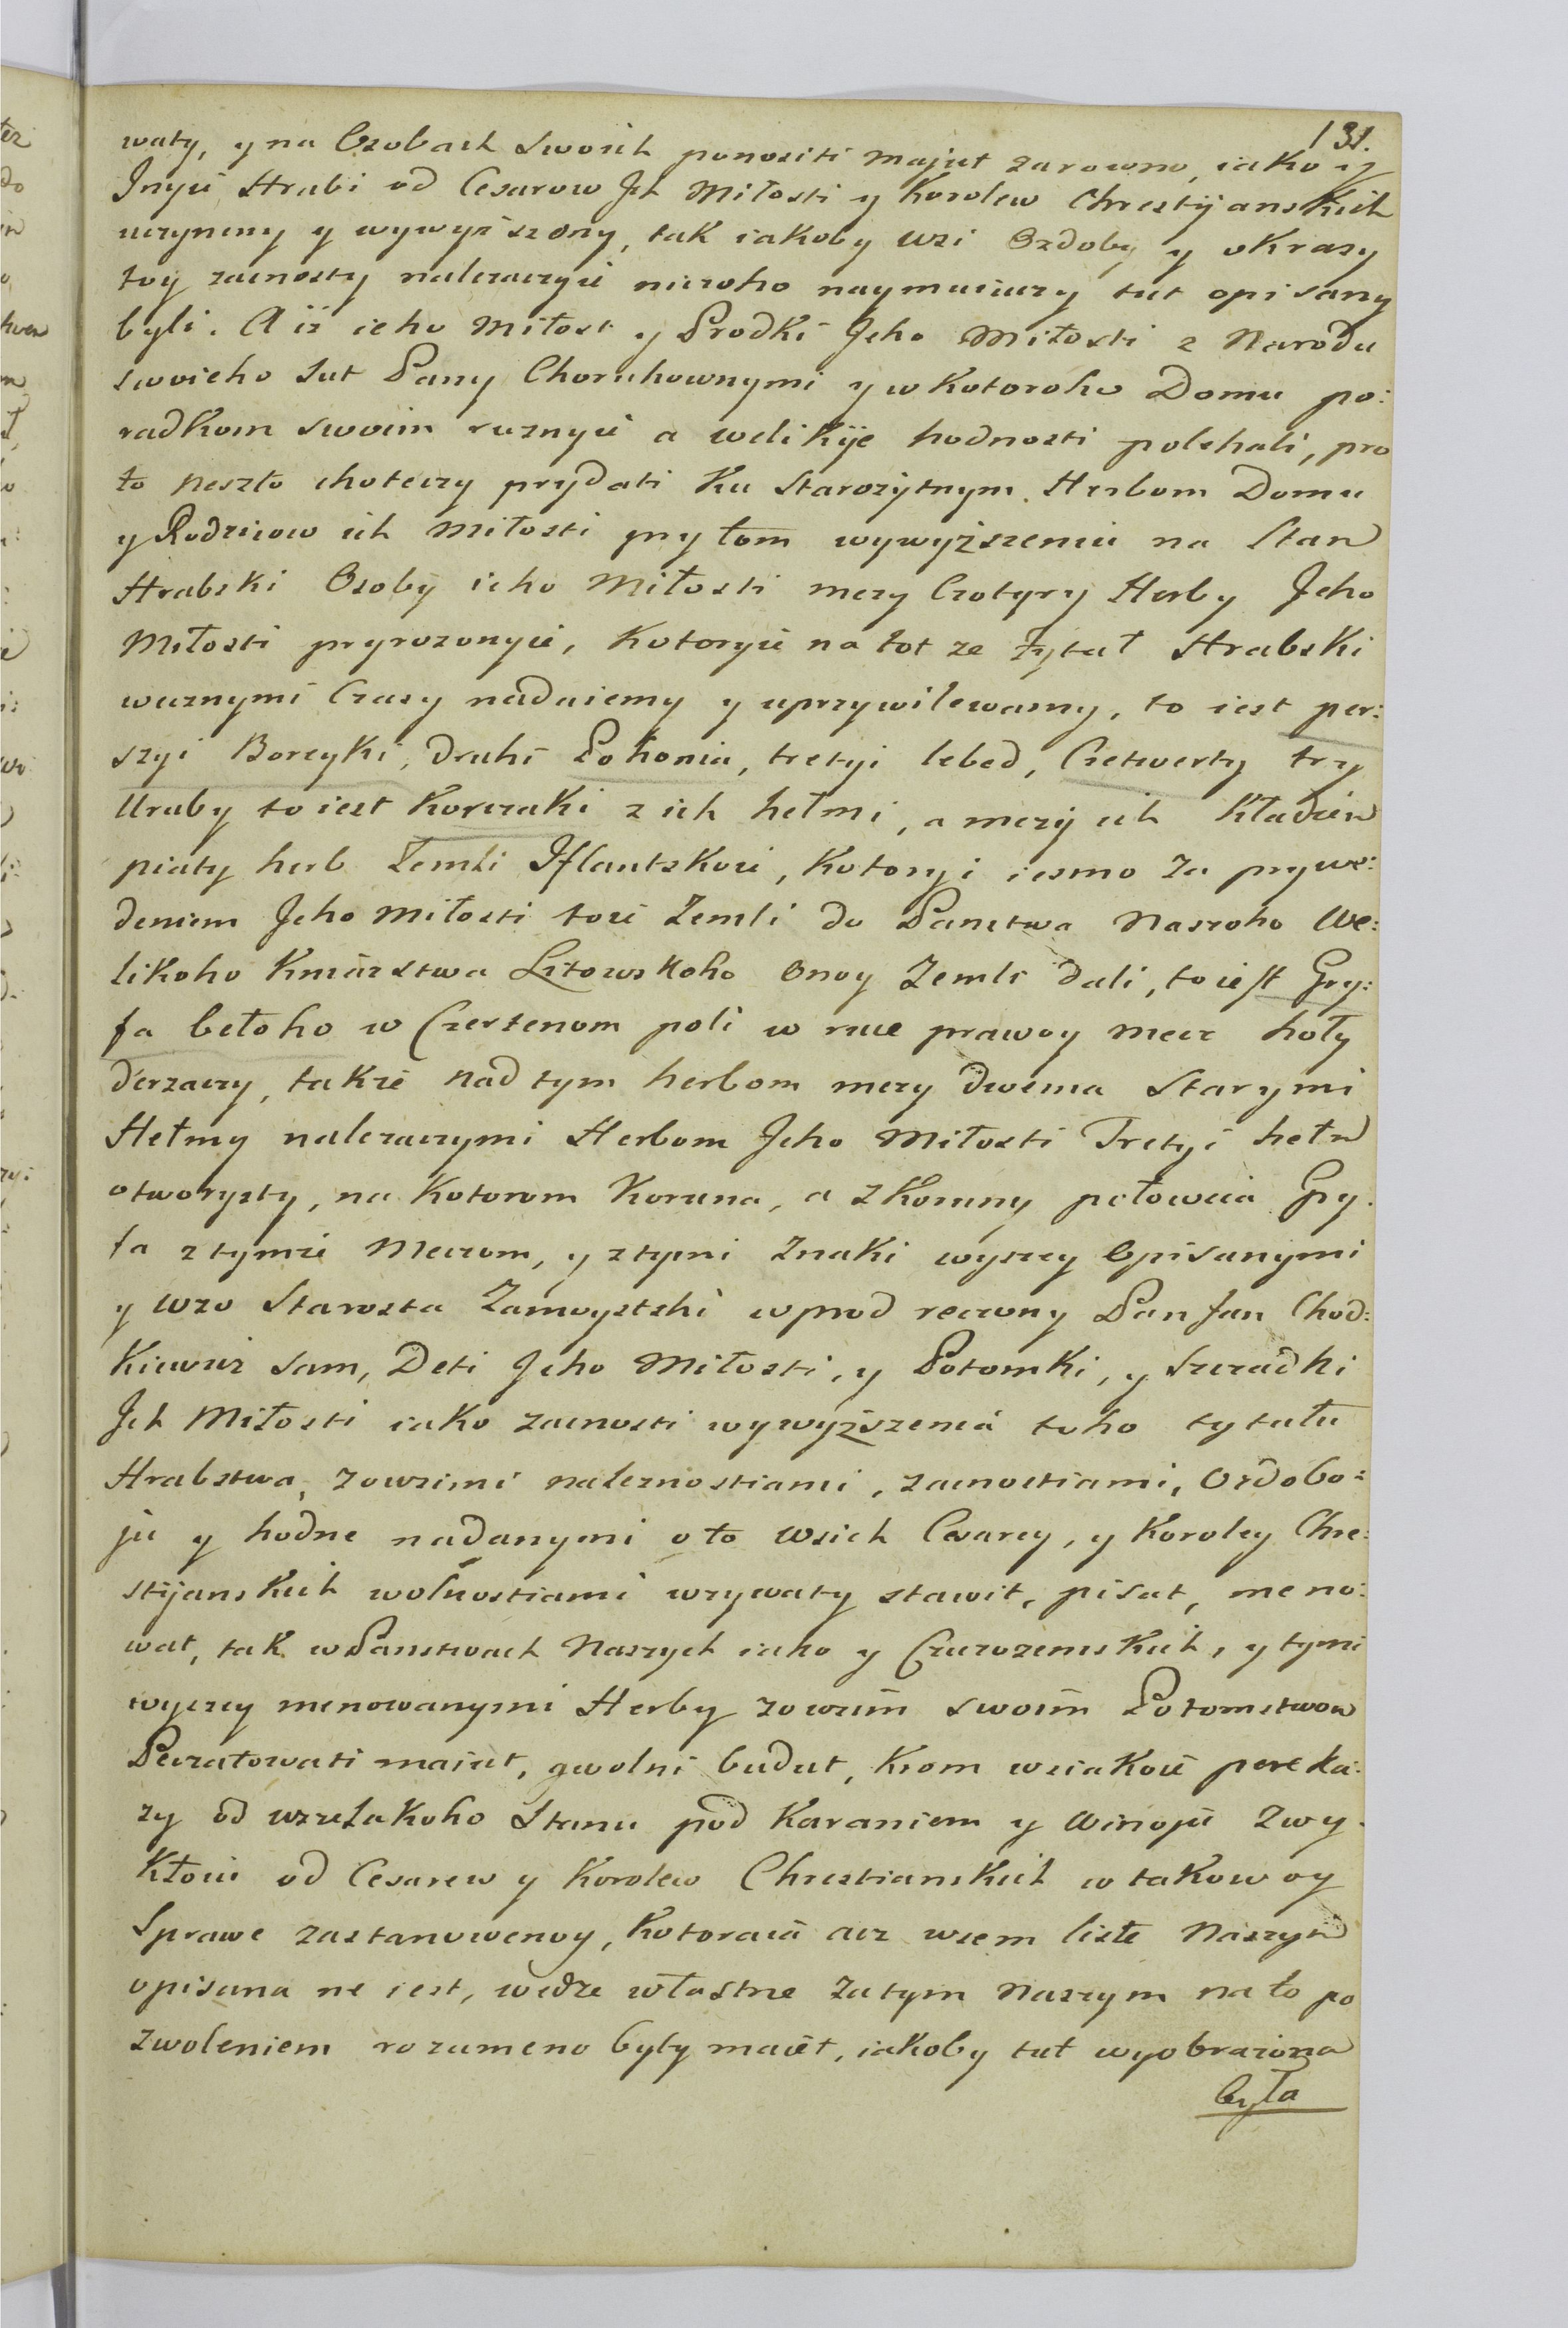 131.
waty, y na Osobach swoich ponositi majut zarowno, iako y
Inyie Hrabi od Cesarow Jch Miłosti y Korolew Chrestijanskich
uczyneny y wywyższony, tak iakoby wsi Ozdoby y okrasy
toy zacnosty należaczyie niczoho naymuiuczy tut opisany
byli. A iż ieho Miłost y Prodki Jeho Miłosti z Narodu
swoieho sut Pany Choruhownymi y w kotoroho Domu po:
radkom swoim roznyie a welikije hodnosti polehali, pro
to neszto choteczy prydati ku Starozytnym Herbom Domu
y Rodzicow ich Miłosti pry tom wywyższeniu na Stan
Hrabski Osoby ieho Miłosti mezy Czotyry Herby Jeho
Miłosti pryrozonyie, kotoryie na tot ze Tytuł Hrabski
wecznymi Czasy nadaiemy y uprzywilewamy, to iest per:
szyi Boreyki, druhi Pohonia, tretyi lebed, Czetwerty try
Wruby to iest Korczaki z ich hełmi, a mezy ich kładem
piaty herb Zemli Iflantskoie, kotoryi iesmo za prywe:
deniem Jeho Miłosti toie Zemli do Panstwa Naszoho We:
likoho Kniazstwa Litowskoho onoy Zemli dali, to iest Gry:
fa bełoho w Czerwenom poli w ruce prawoy mecz hoły
derzaczy, takze nad tym herbom mezy dwema Starymi
Hełmy nalezaczymi Herbom Jeho Miłosti Tretyi hełm
otworysty, na kotorom Koruna, a z Koruny połowica Gry
fa z tymże Meczom, y z tymi Znaki wyszey Opisanymi
y wżo Starosta Zamoytski wprod reczony Pan Jan Chod:
kiewicz sam, Deti Jeho Miłosti, y Potomki, y Szczadki
Jch Miłosti iako zacnosti wywyższenia toho tytułu
Hrabstwa, zo wsimi naleznostiami, zacnostiami, Ozdobo:
ju y hodne nadanymi oto wsich Cesarey, y Koroley Chre:
stijanskich wolnostiami wżywaty stawit, pisat, meno:
wat, tak w Panstwach Naszych iako y Czuzozemskich, y tymi
wyszey menowanymi Herby zo wsim swoim Potomstwom
Peczatowati maiut, y wolni budut, krom wsiakoie pereka:
zy od wszelakoho Stanu pod Karaniem y Winoju Zwy
kłoiu od Cesarew y Korolew Chrestianskich w takowoy
Sprawe zastanowenoy, kotoraia acz wsem liste Naszym
opisana ne iest, wedze własne za tym Naszym na to po
zwoleniem rozumeno byty maiet, iakoby tut wyobrazona
była